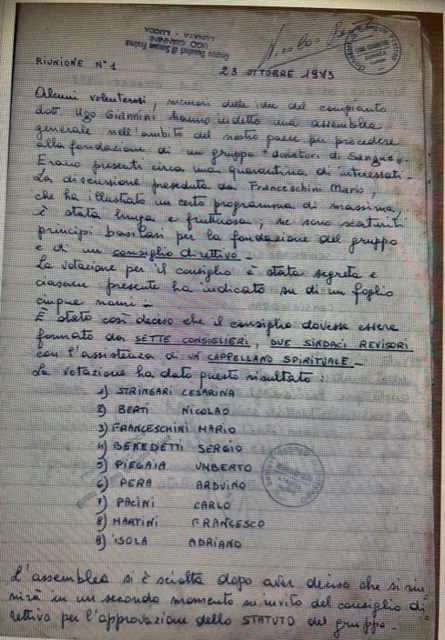 Gruppo Donatori di Sangue Fratres
UGO GIANNINI
LUNATA - LUCCA
RIUNIONE N°1
23 OTTOBRE 1973
Alcuni volenterosi, memori delle idee del compianto
dott. Ugo Giannini hanno indetto una assemblea
generale nell'ambito del nostro paese per procedere
alla fondazione di un gruppo "donatori di sangue".
Erano presenti circa una quarantina di interessati.
La discussione preseduta da Franceschini Mario,
che ha illustrato un certo programma di massima,
è stata lunga e fruttuosa; ne sono scaturiti
principi basilari per la fondazione del gruppo
e di un consiglio direttivo -
La votazione per il consiglio è stata segreta e
ciascun presente ha indicato su di un foglio
cinque nomi -
È stato così deciso che il consiglio dovesse essere
formato da SETTE CONSIGLIERI, DUE SINDACI REVISORI
con l'assistenza di UN CAPPELLANO SPIRITUALE -
La votazione ha dato questo risultato:
1) STRINGARI CESARINA
2) BERTI NICOLAO
3) FRANCESCHINI MARIO
4) BENEDETTI SERGIO
5) PIEGAIA UMBERTO
6) PERA ARDUINO
7) PACINI CARLO
8) MARTINI FRANCESCO
9) ISOLA ADRIANO
L'assemblea si è sciolta dopo aver deciso che si riu
nirà in un secondo momento su invito del consiglio di
rettivo per l'approvazione dello STATUTO del gruppo -